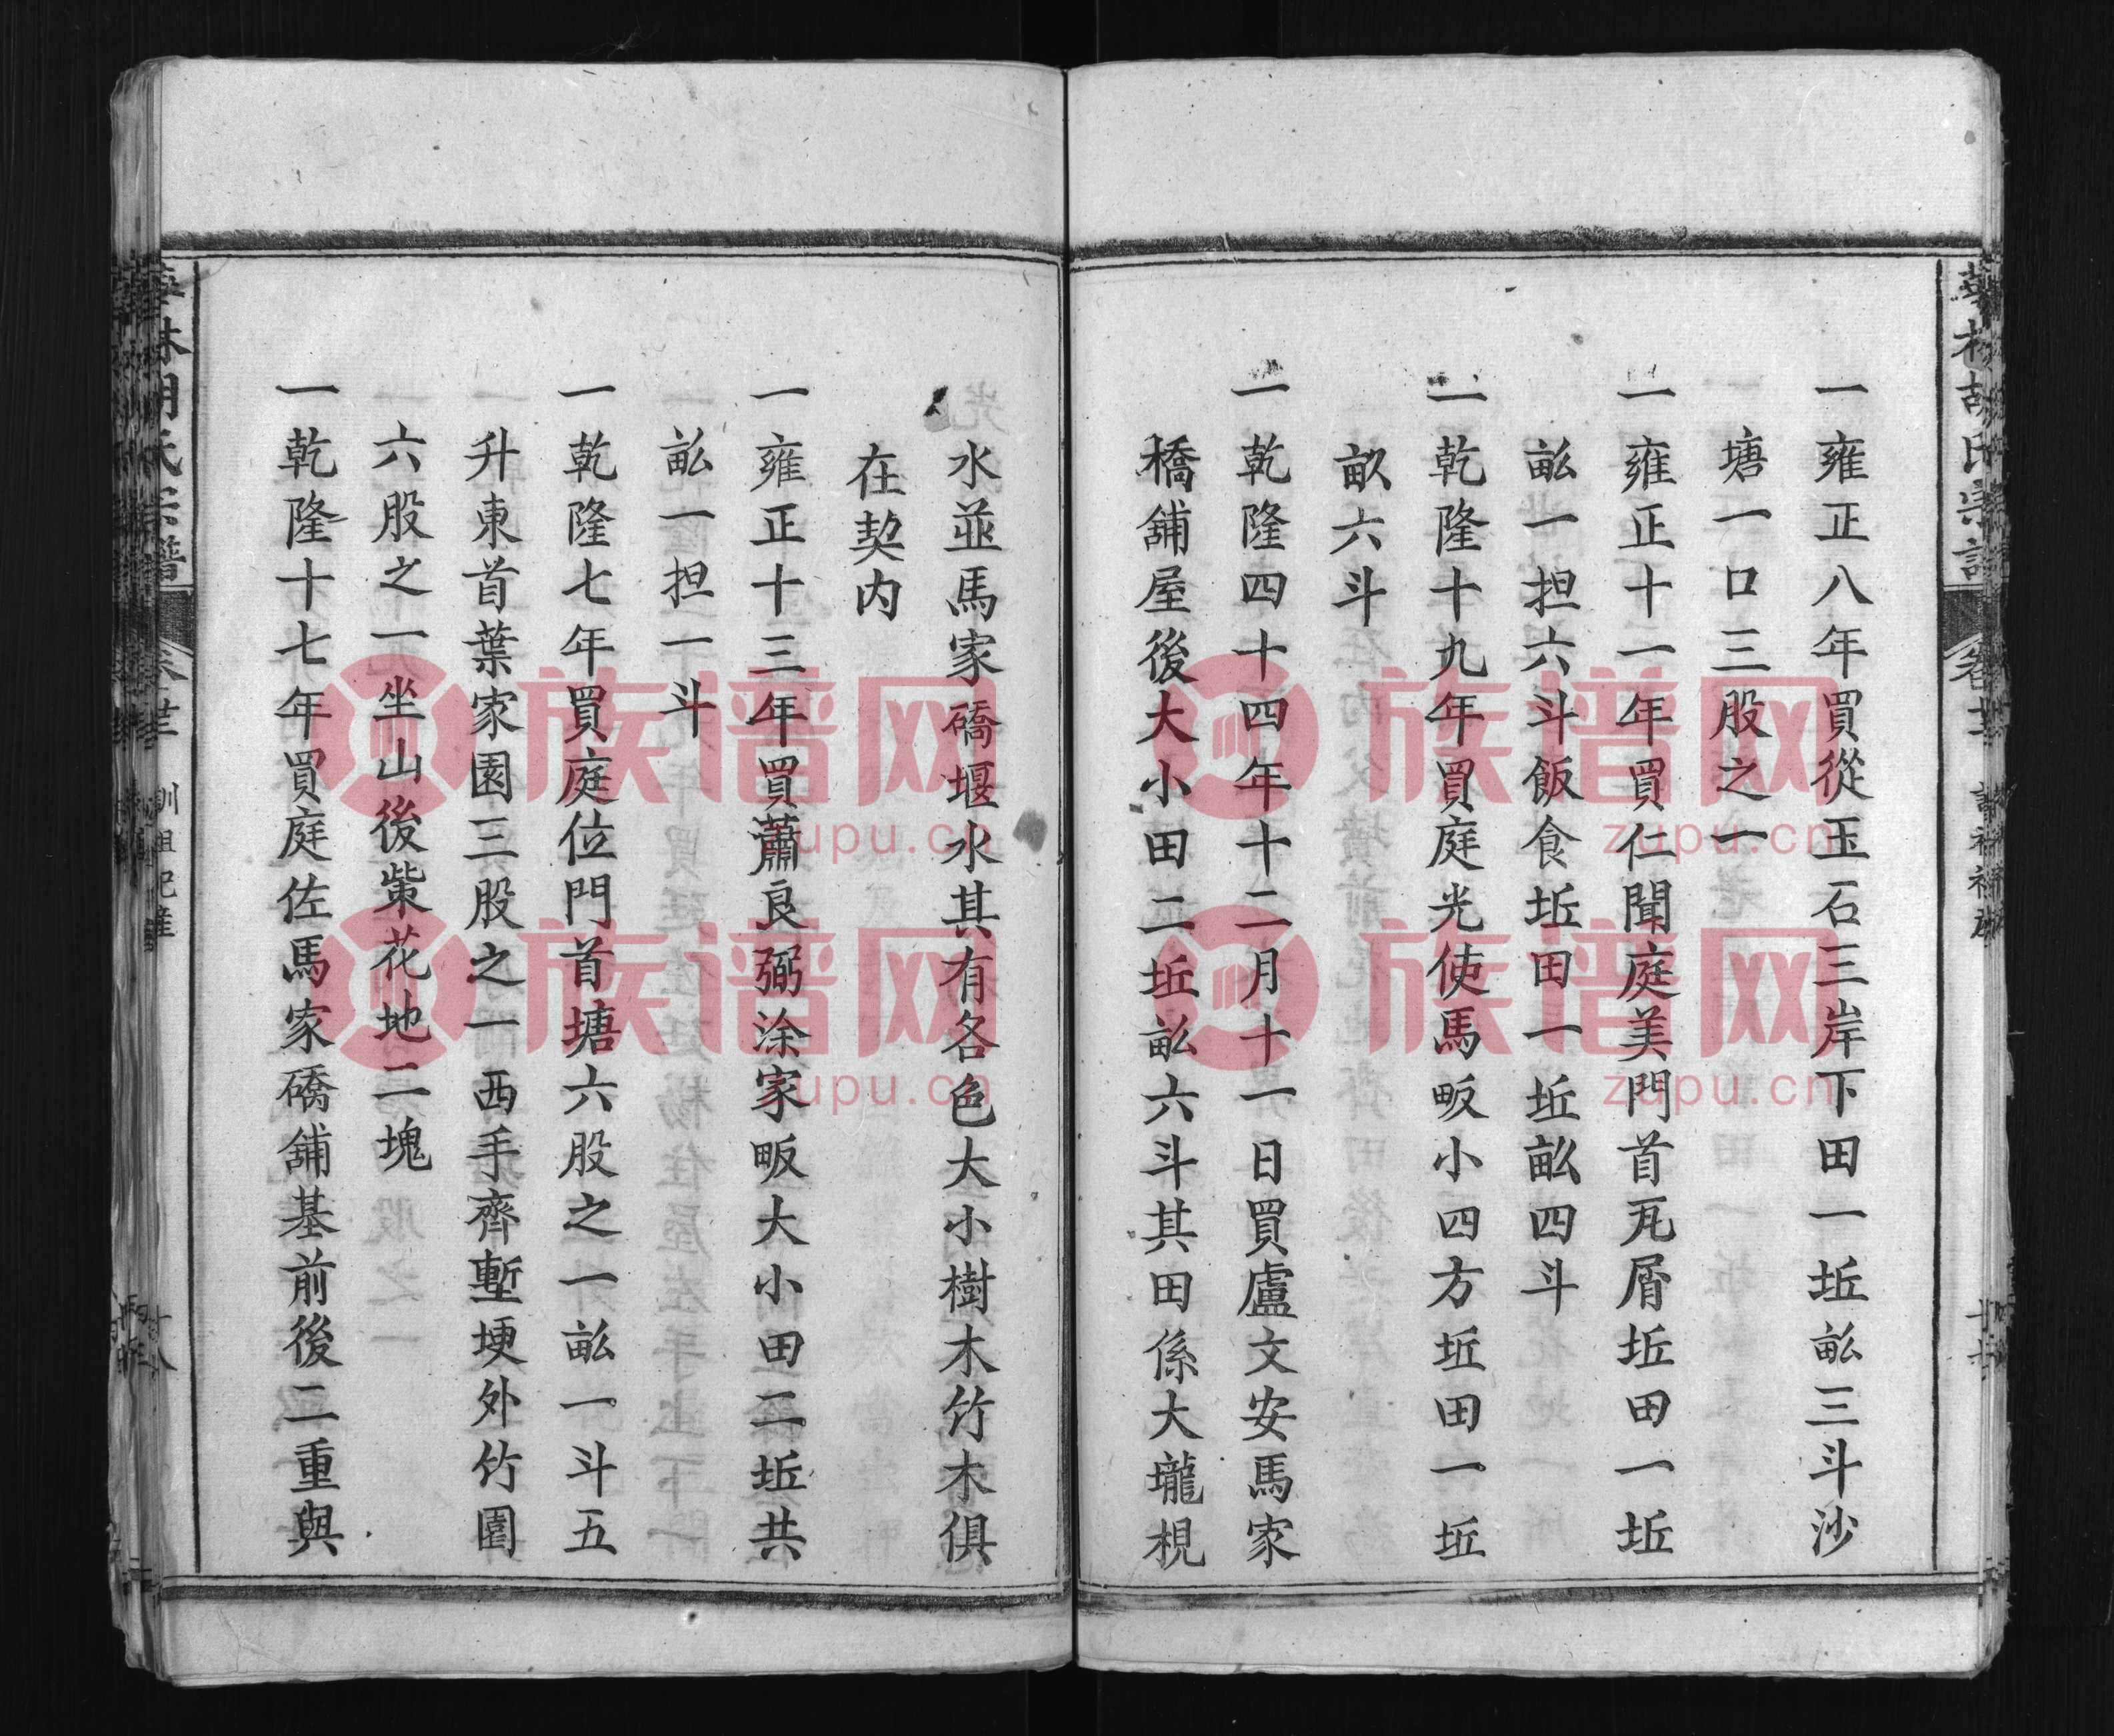 一雍正八年買從玉石三岸下田一坵畆三斗沙
塘一口三股之一
一雍正十一年買仁聞庭美門首瓦屑坵田一坵
畆一担六斗飯食坵田一坵畆四斗
一乾隆十九年買庭光使馬畈小四方坵田一坵
畝六斗
一乾隆四十四年十二月十一日買盧文安馬家
橋舖屋後大小田二坵畆六斗其田係大壠梘
水並馬家礄堰水其有各色大小樹木竹木俱
在契内
一雍正十三年買蕭良弼涂家畈大小田二坵共
畆一担一斗
一乾隆七年買庭位門首塘六股之一畆一斗五
升東首葉家園三股之一西手齊塹埂外竹園
六股之一坐山後柴花地二塊
一乾隆十七年買庭佐馬家礄舖基前後二重與
林胡氏宗譜
族谱网
zupu.cn
族谱网
zupu.cn
族谱网
zupu.cn
族谱网
zupu.cn